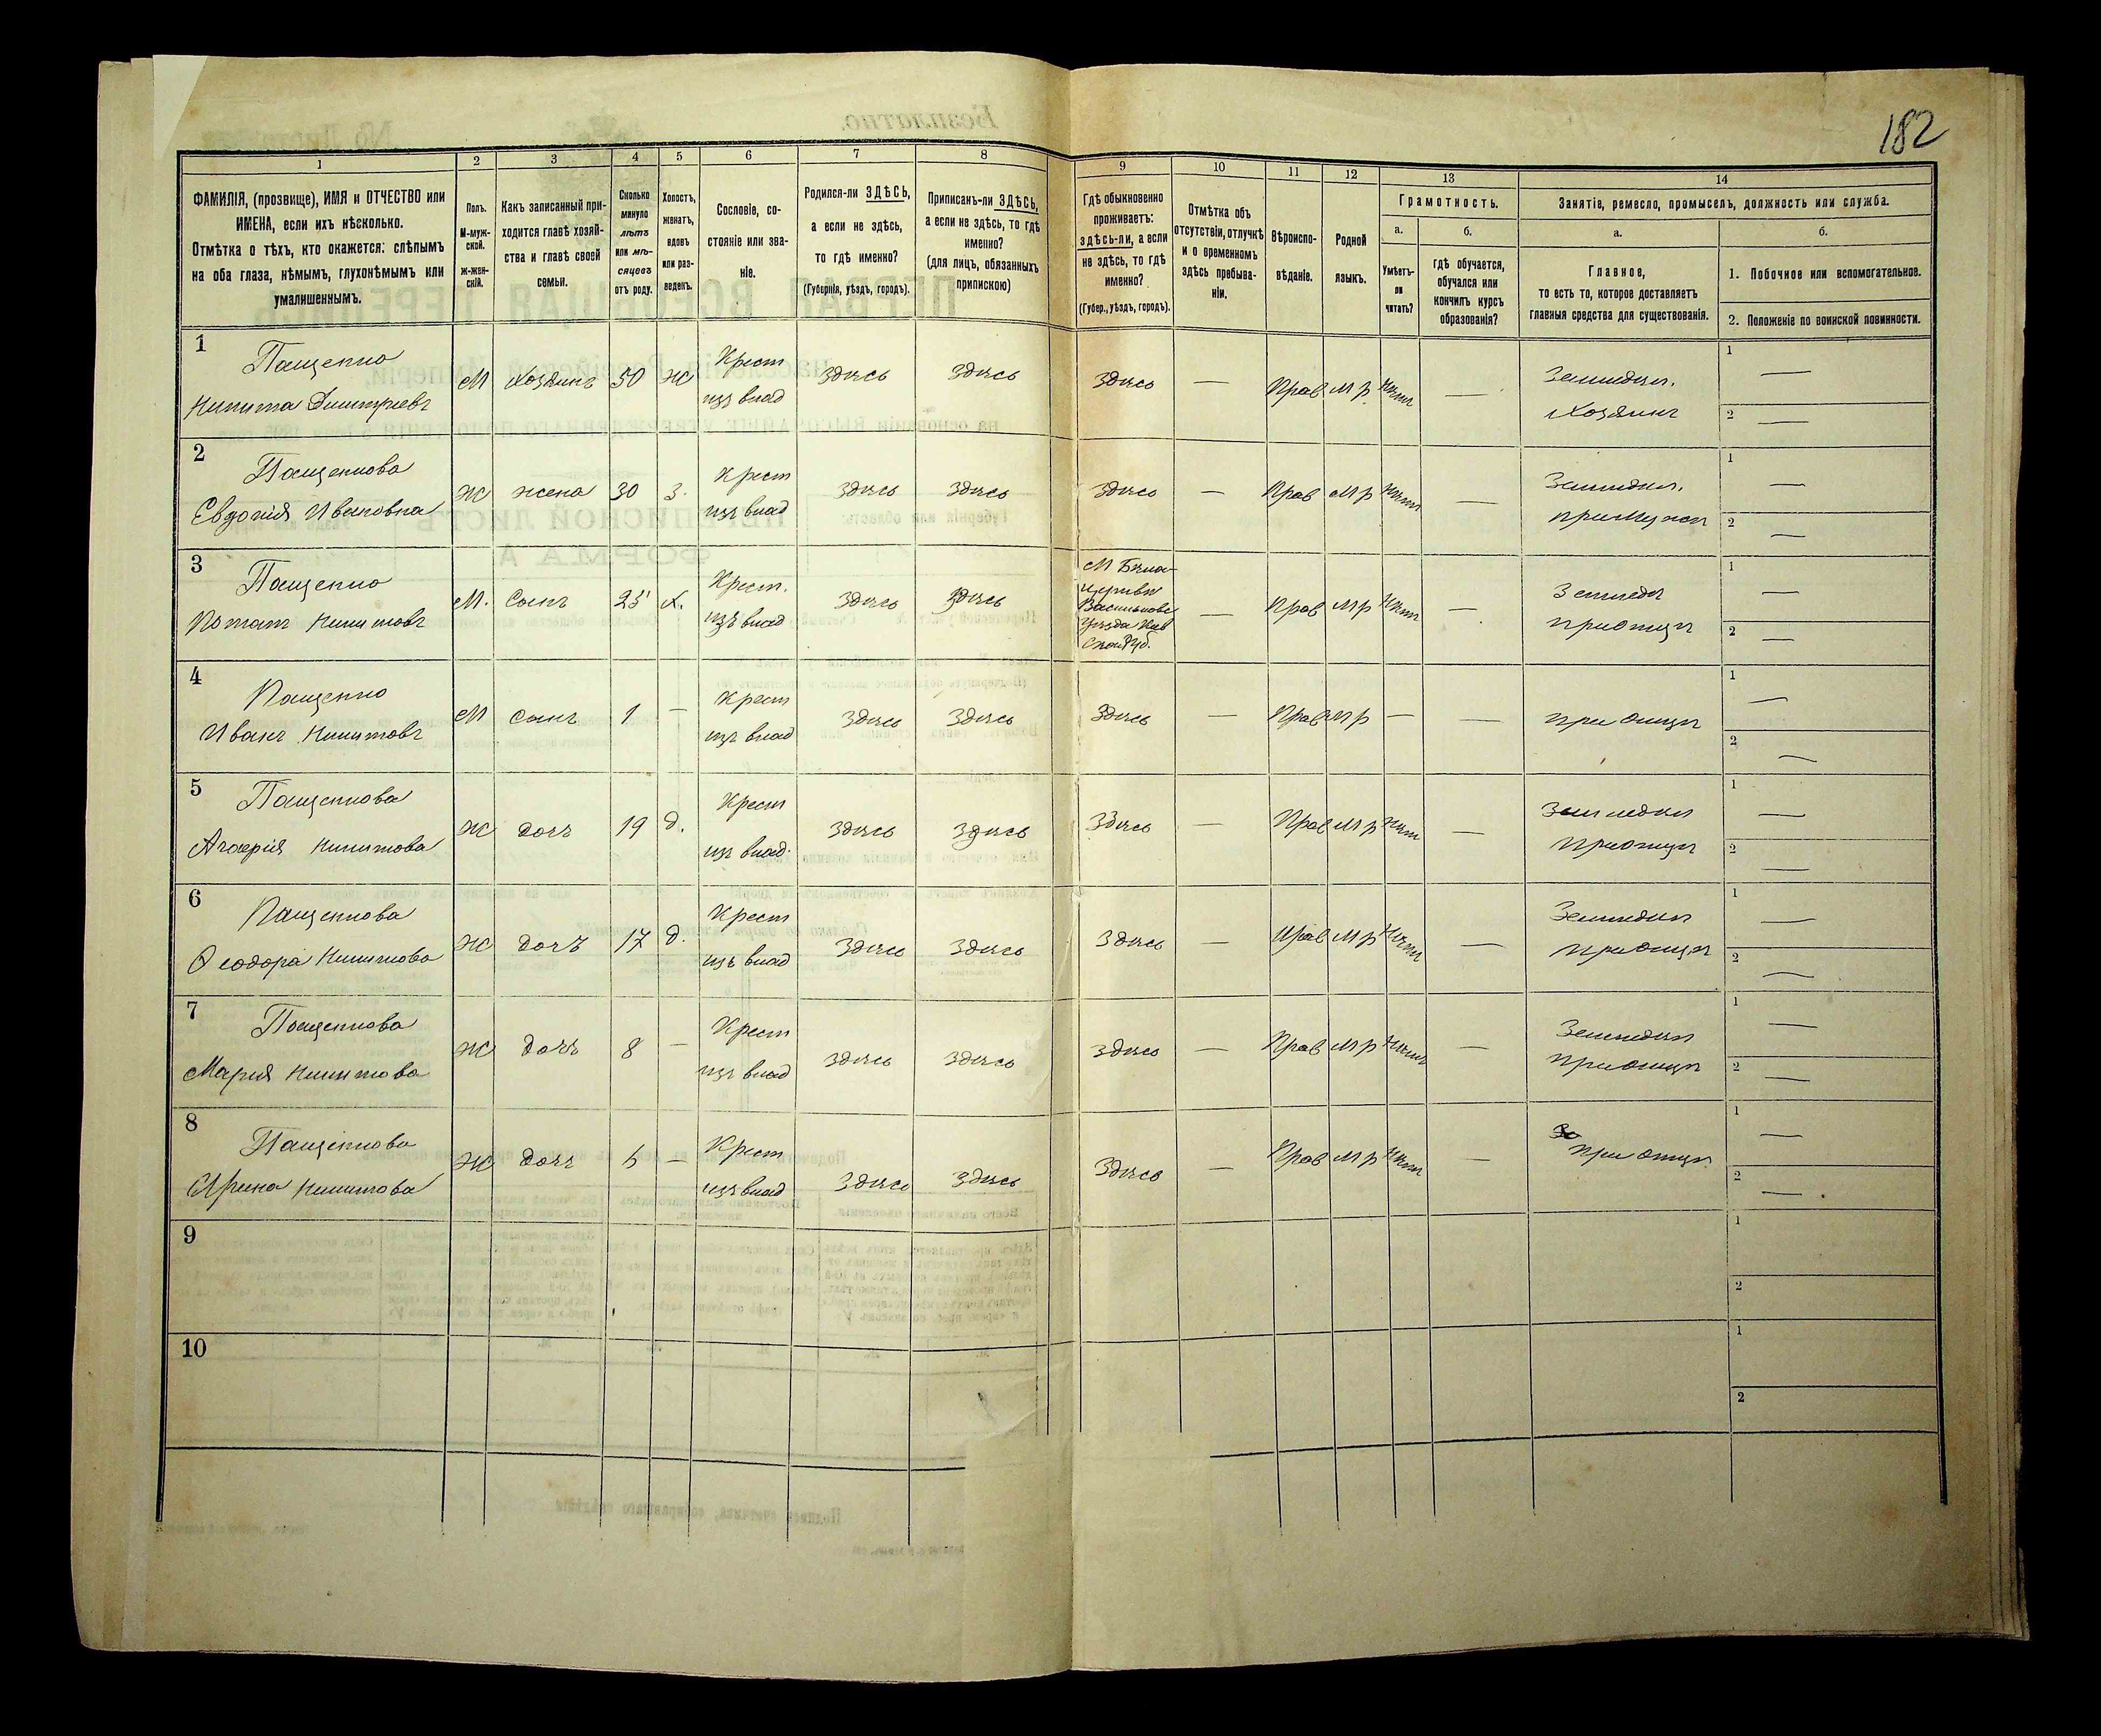 182
1
2
3
4
5
6
7
8
9
10
11
12
13
14
ФАМИЛІЯ, (прозвище), ИМЯ и ОТЧЕСТВО или
ИМЕНА, если ихъ нѣсколько.
Отмѣтка о тѣхъ, кто окажется: слѣпымъ
на оба глаза, нѣмымъ, глухонѣмымъ или
умалишеннымъ.
Полъ.
М-муж-
ской.
Ж-жен-
скій.
Какъ записанный при-
ходится главѣ хозяй-
ства и главѣ своей
семьи.
Сколько
минуло
лѣтъ
или мѣ-
сяцевъ
отъ роду.
Холостъ,
женатъ,
вдовъ
или раз-
веденъ.
Сословіе, со-
стояніе или зва-
ніе.
Родился-ли ЗДѢСЬ,
а если не здѣсь,
то гдѣ именно?
(Губернія, уѣздъ, городъ).
Приписанъ-ли ЗДѢСЬ,
а если не здѣсь, то гдѣ
именно?
(для лицъ, обязанныхъ
припискою)
Гдѣ обыкновенно
проживаетъ:
здѣсь-ли, а если
не здѣсь, то гдѣ
именно?
(Губер., уѣздъ, городъ).
Отмѣтка объ
отсутствіи, отлучкѣ
и о временномъ
здѣсь пребыва-
ніи.
Вѣроиспо-
вѣданіе.
Родной
языкъ.
Грамотность.
а.
Умѣетъ-
ли
читать?
б.
гдѣ обучается,
обучался или
кончилъ курсъ
образованія?
Занятіе, ремесло, промыселъ, должность или служба.
а.
Главное,
то есть то, которое доставляетъ
главныя средства для существованія.
б.
1. Побочное или вспомогательное.
2. Положеніе по воинской повинности.
1
Пащенко
Никита Дмитріевъ
М
Хозяинъ
50
Ж
Крест
изъ влад
здѣсь
здѣсь
здѣсь
—
Прав
М р
нѣтъ
—
Земледѣл.
Хозяинъ
1
—
2
—
2
Пащенкова
Евдокія Ивановна
Ж
жена
30
З.
Крест
изъ влад
здѣсь
здѣсь
здѣсь
—
Прав
М р
нѣтъ
—
Земледѣл.
при мужѣ
1
—
2
—
3
Пащенко
Потапъ Никитовъ
М.
Сынъ
25
Х.
Крест.
изъ влад
здѣсь
здѣсь
М Бѣла-
Церквы
Васильков
уѣзда Кіев
ской Губ.
—
Прав
М р
нѣтъ
—
Земледѣл
при отцѣ
1
—
2
—
4
Пащенко
Иванъ Никитовъ
М
сынъ
1
—
Крест
изъ влад
здѣсь
здѣсь
здѣсь
—
Прав
М р
—
—
при отцѣ
1
—
2
—
5
Пащенкова
Никитова
Ж
дочь
19
д.
Крест
изъ влад.
здѣсь
здѣсь
здѣсь
—
Прав
М р
нѣтъ
—
Земледѣл
при отцѣ
1
—
2
—
6
Пащенкова
Ѳеодора Никитова
Ж
дочь
17
д.
Крест
изъ влад
здѣсь
здѣсь
здѣсь
—
Прав
М р
нѣтъ
—
Земледѣл
при отцѣ
1
—
2
—
7
Пащенкова
Марія Никитова
Ж
дочь
8
—
Крест
изъ влад
здѣсь
здѣсь
здѣсь
—
Прав
М р
нѣтъ
—
Земледѣл
при отцѣ
1
—
2
—
8
Пащенкова
Ирина Никитова
Ж
дочь
—
Крест
изъ влад
здѣсь
здѣсь
здѣсь
—
Прав
М р
нѣтъ
—
при отцѣ
1
—
2
—
9
1
2
10
1
2